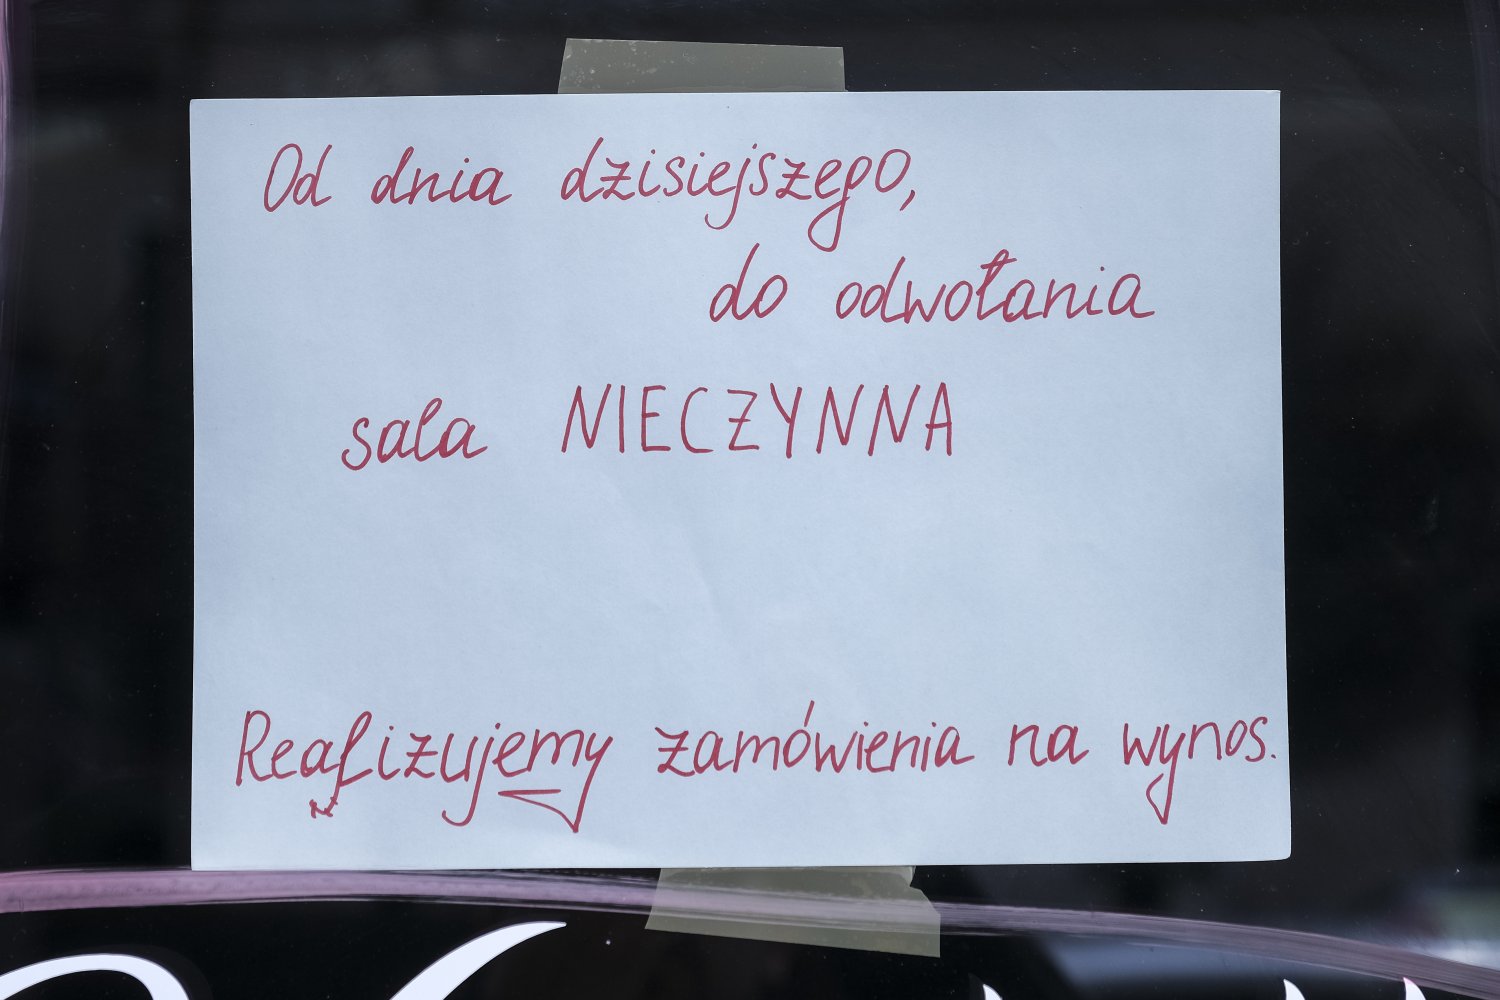 Od dnia dzisiejszego,
do odwołania
sala NIECZYNNA
Realizujemy zamówienia na wynos.